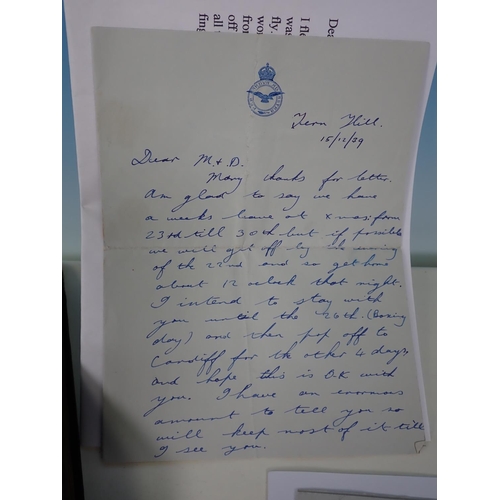 Dea
I fle
was
fly.
wor
from
off
all
fing
Tern Hill.
15/12/39
Dear M. & D.
Many thanks for letter.
Am glad to say we have
a weeks leave at Xmas: from
23rd till 30th but if possible
we will get off by the evening
of the 22nd and so get home
about 12 oclock that night.
I intend to stay with
you until the 26th. (Boxing
day) and then pop off to
Cardiff for the other 4 days
and hope this is OK with
you. I have an enormous
amount to tell you so
will keep most of it till
I see you.